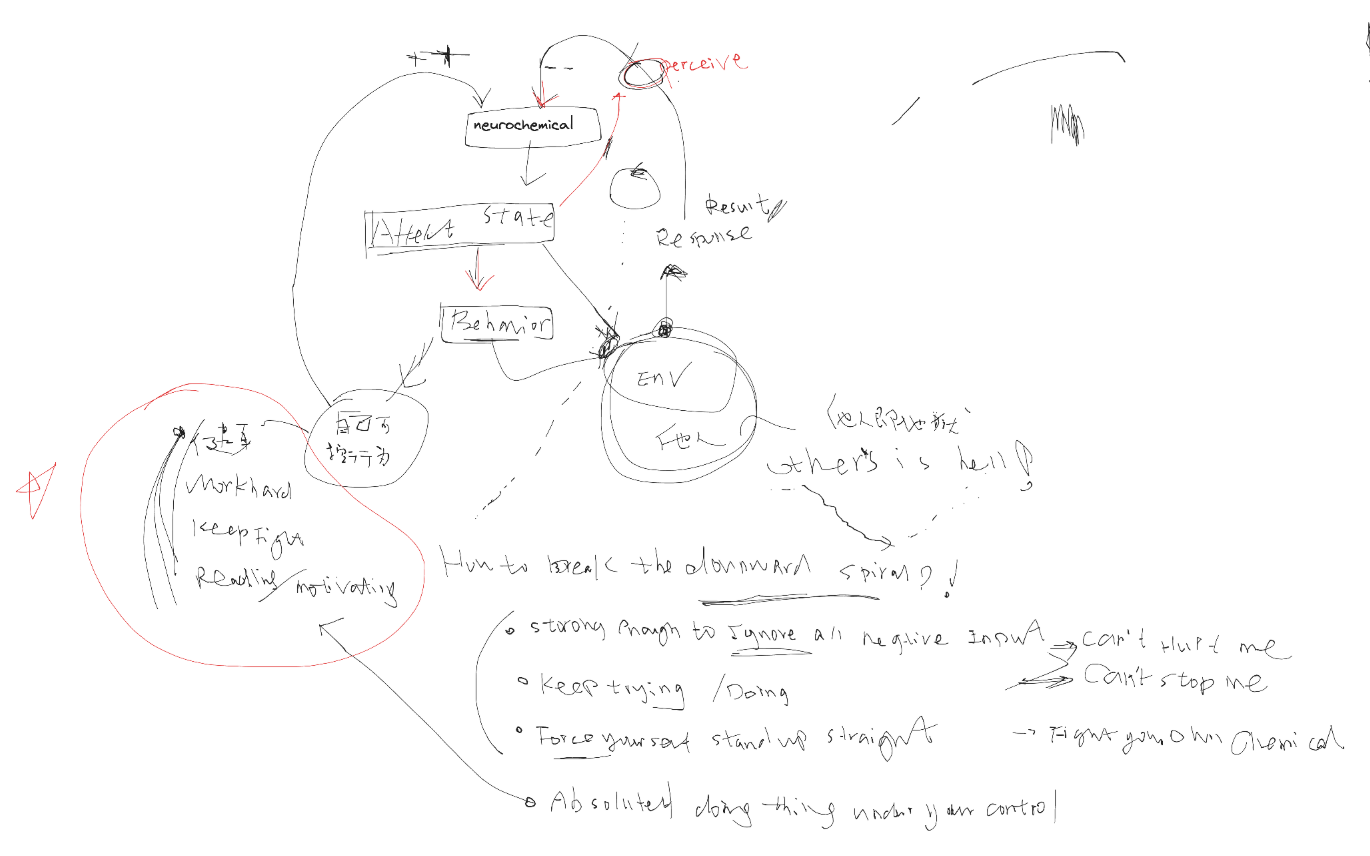 ++
--
perceive
neurochemical
Affect state
Result
Response
Behavior
Env
他人
自己可
控行为
他人即地狱
other's is hell!
健身
Workhard
Keep Fight
Reading/motivating
How to break the downward spiral?!
• Strong enough to Ignore all negtive Input → Can't Hurt me
→ Can't stop me
• Keep trying /Doing
• Force yourself stand up straight → Fight your own Chemical
• Absolutely doing thing under your control